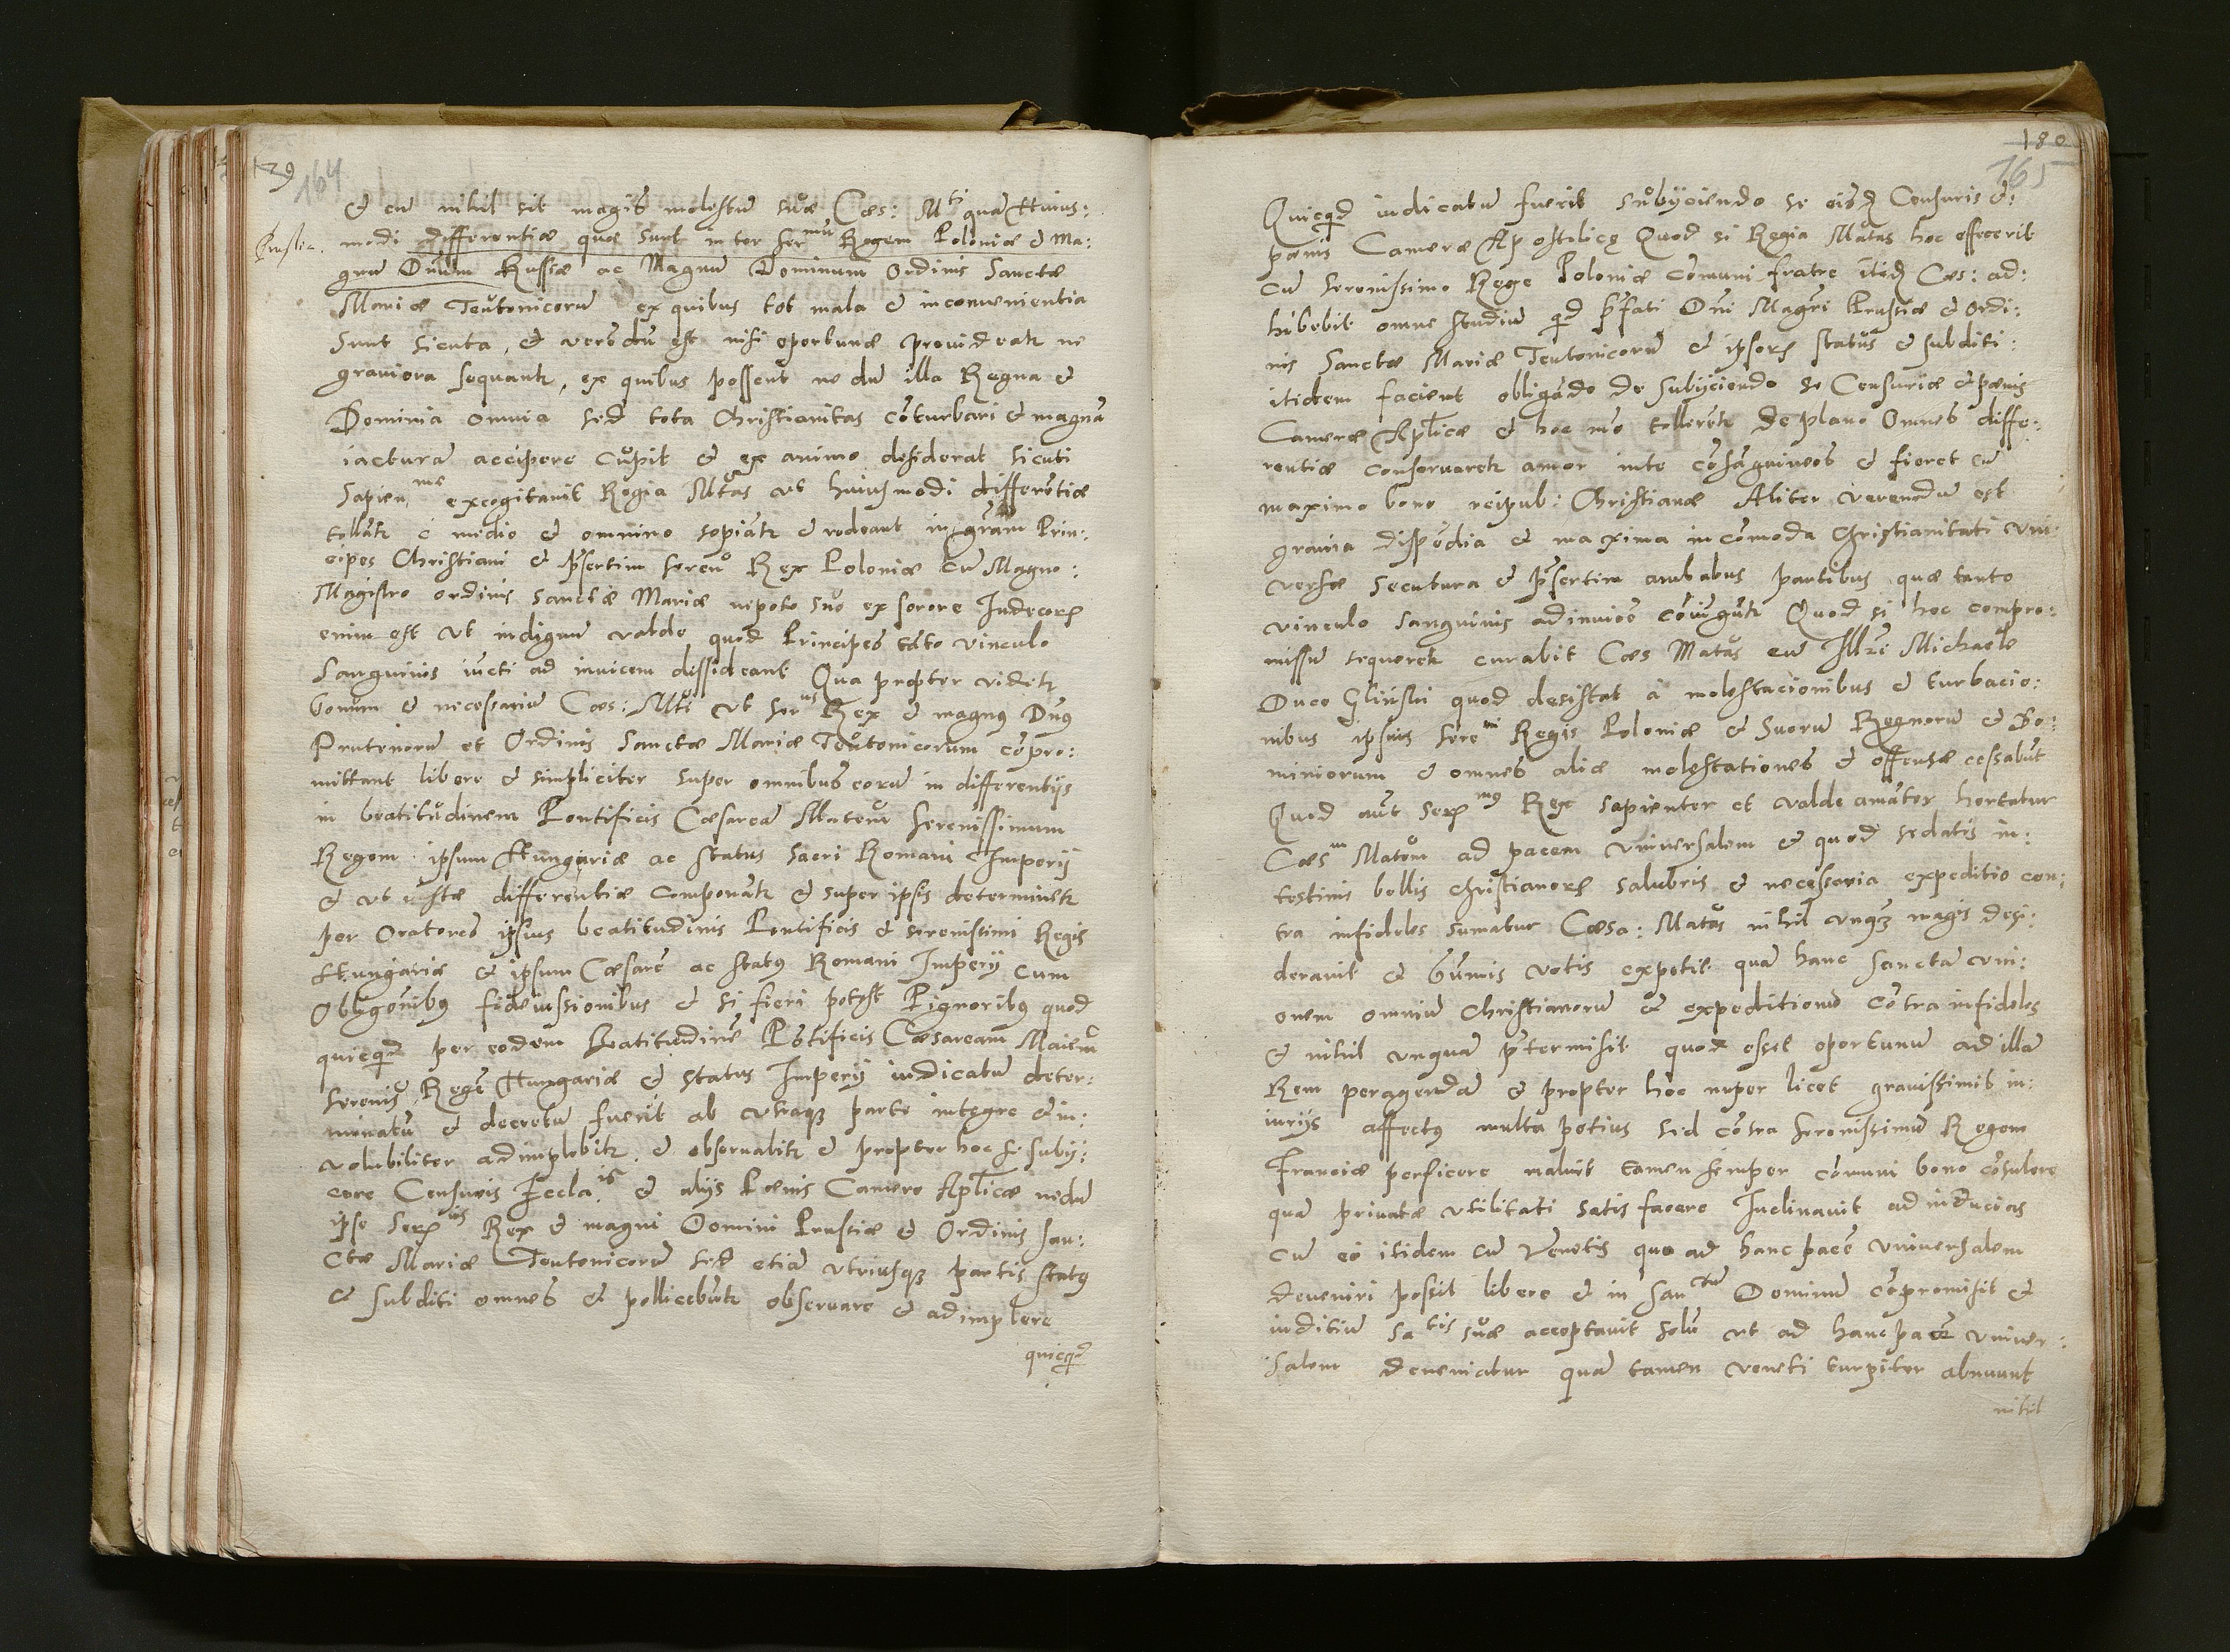 139 164
& cu nihil sit magis molestum suæ Cæs: Mti quam Huius:
Prussia. modi differentiæ quæ sunt inter Sermũ Regem Poloniæ & Ma:
gnum Dũum Russiæ ac Magnum Dominum Ordinis Sanctæ
Mariæ Teutonicorũ ex quibus tot mala & inconuenientia
Sunt sicuta, & verẽdũ est nisi oportunæ prouideatr ne
grauiora sequantr, ex quibus possent ne dũ illa Regna &
Dominia omnia sed tota Christianitas cõturbari & magnã
iacturã accipere cupit & ex animo desiderat sicuti
Sapienme excogitauit Regia Mtas vt huiusmodi differẽtiæ
tollãtr è midio & omnino sopiãtr & redeant in grãm Prin:
cipes Christiani & p̃sertim Seren Rex Poloniæ cũ Magno:
Magistro ordinis sanctæ Mariæ nepote suo ex sorore Indecor
enim est vt indignum valde quod Principes tãto vinculo
Sanguinis iũcti ad inuicem dissideant Qua propter videtr
bonum & necessariũ Cæs: Mti vt Serus Rex & magnꝰ Dñꝰ
Prutenorũ et Ordinis Sanctæ Mariæ Teutonicorum cõpro:
mittant libere & simpliciter super omnibus eorũ in differentijs
in beatitudinem Pontificis Cæsareã Matem Serenissimum
Regem ipsum Hungariæ ac status Sacri Romani Imperij
& vt istæ differentiæ componãtr & super ipsis determinetr
per Oratores ipsius beatitudinis Pontificis & serenissimi Regis
Hungariæ & ipsum Cæsarẽ ac statꝰ Romani Imperij cum
Obligõnibꝰ fideiussionibus & si fieri potest Pignoribꝰ quod
quicqd per eodem Beatitudinẽ Põtificis Cæsaream Maiem
Serenis Regẽ Hungariæ & Status Imperij iudicatũ deter:
minatũ & decretũ fuerit ab vtraqꝫ parte integre & in:
volubiliter adimplebitr & obseruabitr & propter hoc se subij:
cere Censuris Eccla.is & alijs Pœnis Camere Aplicæ nedũ
ipse Serus Rex & magni Domini Prussiæ & Ordinis San:
ctæ Mariæ Teutonicorũ sed etiã vtriusqꝫ partis statꝰ
& subditi omnes & pollicebũtr obseruare & adimplere
quicqd
180
165
Quicqd iudicatũ fuerit subijciendo se eisdẽ Censuris &:
pœnis Cameræ Apostolicę Quod si Regia Matas hoc effecerit
cũ Serenissimo Rege Poloniæ cõmuni fratre itidẽ Cæs: ad:
hibebit omne studiũ qd p̃fati Dñi Magñi Prussiæ & Ordi:
nis Sanctæ Mariæ Teutonicorũ & ipsorũ status & subditi:
itidem facient obligãdo de Subijciendo se Censuriæ & pœnis
Cameræ Aplicæ & hoc mõ tollerẽtr de plano Omnes diffe:
rentiæ conseruaretr amor inte cõsãguineos & fieret cũ
maximo bono reipub: Christianæ Aliter verendũ est
grauia dispẽdia & maxima incõmoda Christianitati vni:
versæ secutura & p̃sertim ambabus partibus quæ tanto
vinculo sanguinis adinuicẽ cõiũgũtr Quod si hoc compro:
missũ sequeretr curabit Cæs Matas cũ Illre Michaele
Duce Glinski quod desistat à molestacionibus & turbacio:
nibus ipsius Sereni Regis Poloniæ & Suorũ Regnorũ & Do:
miniorum & omnes aliæ molestationes & offensæ cessabũt
Quod aũt Sermꝰ Rex sapienter et valde amãter hortatur
Cæsm Matem ad pacem vniuersalem & quod sedatis in:
testinis bellis christianorũ salubris & necessaria expeditio con:
tra infideles sumatur Cæsa: Matas nihil vnqꝫ magis desi:
derauit & õmnis votis expetit quã hanc sanctã vni:
onem omniũ Christianorũ & expeditionẽ cõtra infideles
& nihil vnquã p̃termisit quod esset oportunũ ad illã
Rem peragendã & propter hoc nuper licet grauissimis in:
iurijs affectꝰ multa potius sed cõtra Serenissimũ Regem
Franciæ perficere maluit tamen semper cõmuni bono cõsulere
quã priuatæ vtilitati satis facere Inclinauit ad inducias
cũ eo itidem cũ Venetis quo ad hanc pacẽ vniuersalem
deueniri possit libere & in Sanctum Dominũ cõpromisit &
inditiũ Satis suæ acceptauit solũ vt ad hanc pacẽ vniuer:
salem deueniatur quã tamen veneti turpiter abnuunt
nihil